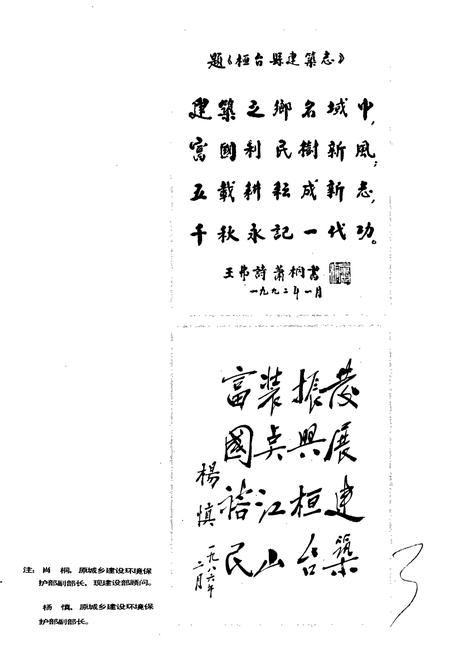 题《桓台县建築志》
建築之鄉名域中，
富國利民樹新風；
五載耕耘成新志，
千秋永記一代功。
王弗詩蕭桐書
一九九二年一月
發展建築
振興桓台
装点江山
富國裕民
楊慎
一九八六年二月
注：肖桐，原城乡建设环境保
护部副部长，现建设部顾问。
杨慎，原城乡建设环境保
护部副部长。